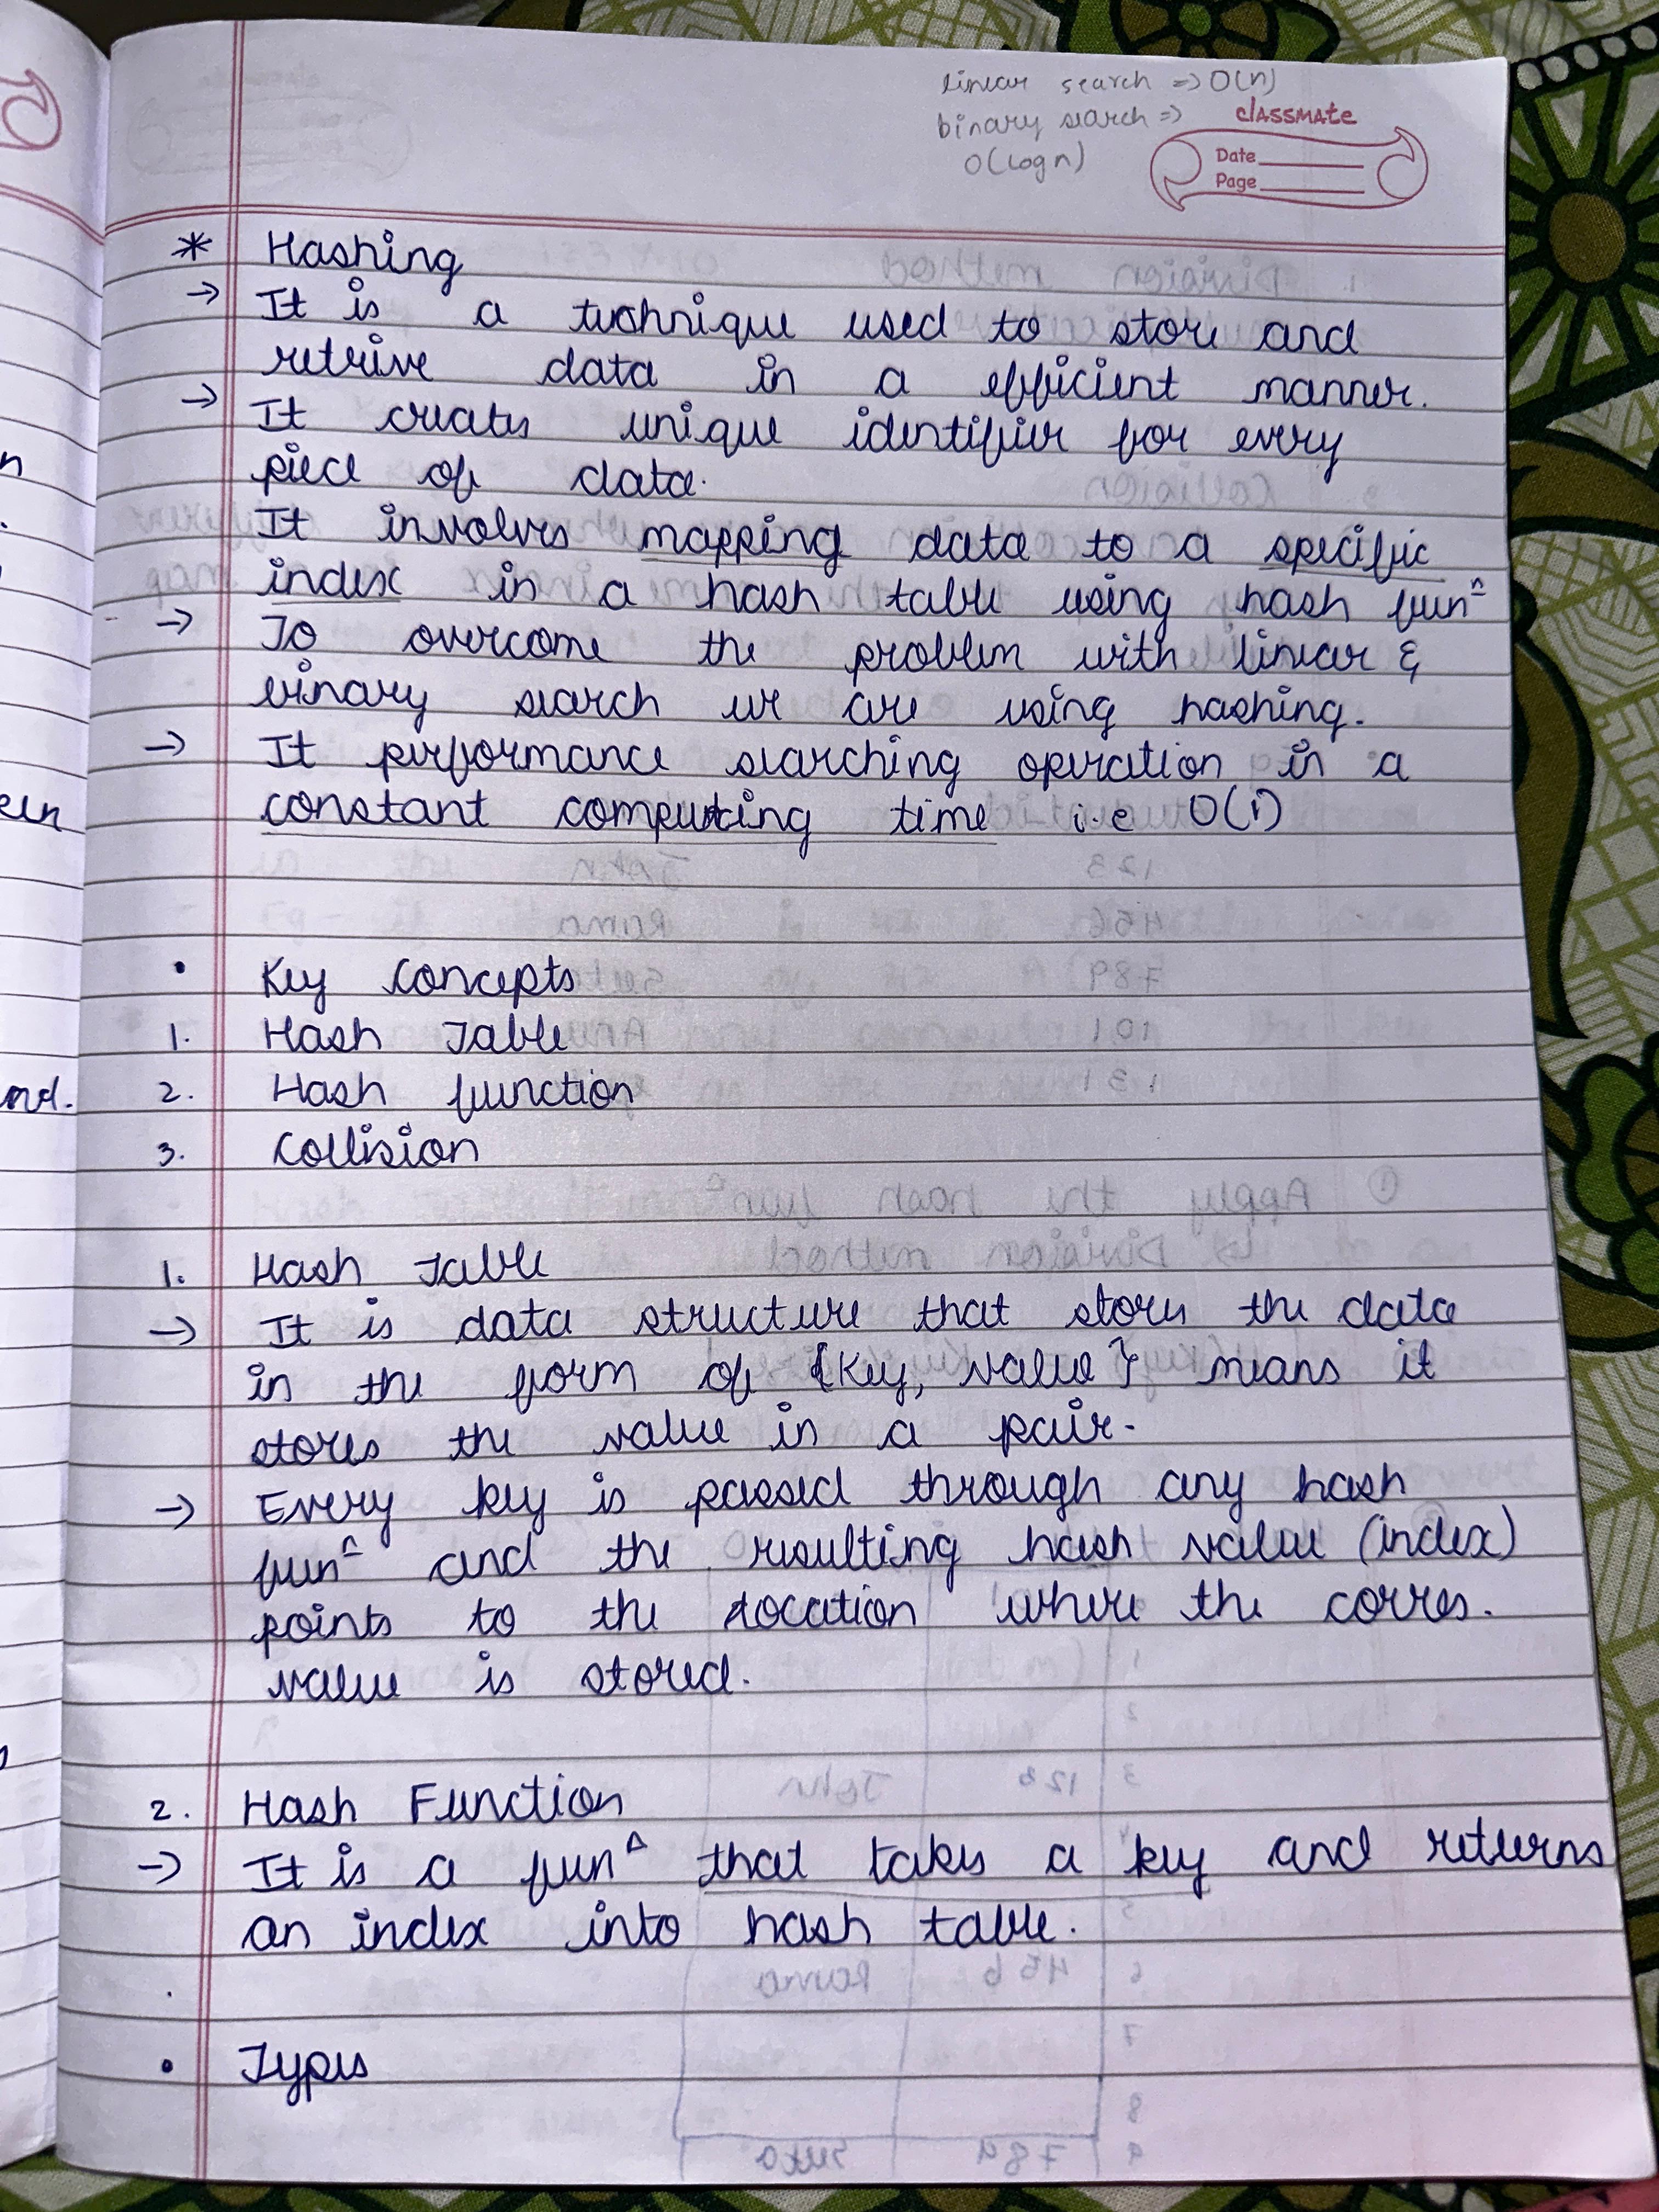 linear search => O(n)
binary search =>
O(log n)
classmate
Date
Page
* Hashing
→ It is a technique used to store and
retrive data in a efficient manner.
→ It creates unique identifier for every
piece of data.
It involves mapping data to a specific
index in a hash table using hash funⁿ
→ To overcome the problem with linear &
binary search we are using hashing.
→ It performance searching operation in a
constant computing time i.e O(1)
• Key Concepts
1. Hash Table
2. Hash function
3. Collision
1. Hash Table
→ It is data structure that stores the data
in the form of {Key, Value} means it
stores the value in a pair.
→ Every key is passed through any hash
funⁿ and the resulting hash value (index)
points to the location where the corres.
value is stored.
2. Hash Function
→ It is a funⁿ that takes a key and returns
an index into hash table.
• Types